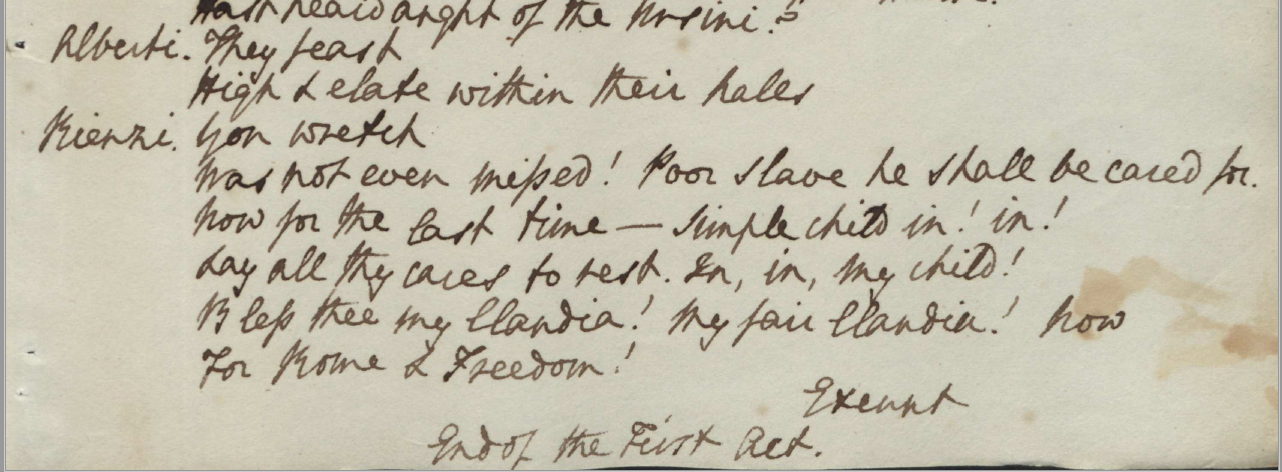 Hast heard aught of the Ursini?
Alberti. They feast
High & elate within their halls
Rienzi. Yon wretch
Was not even missed! Poor slave he shall be cared for.
Now for the last time — Simple child in! in!
Lay all thy cares to rest. In, in, my child!
Bless thee my Claudia! My fair Claudia! Now
For Rome & Freedom!
Exeunt
End of the First Act.